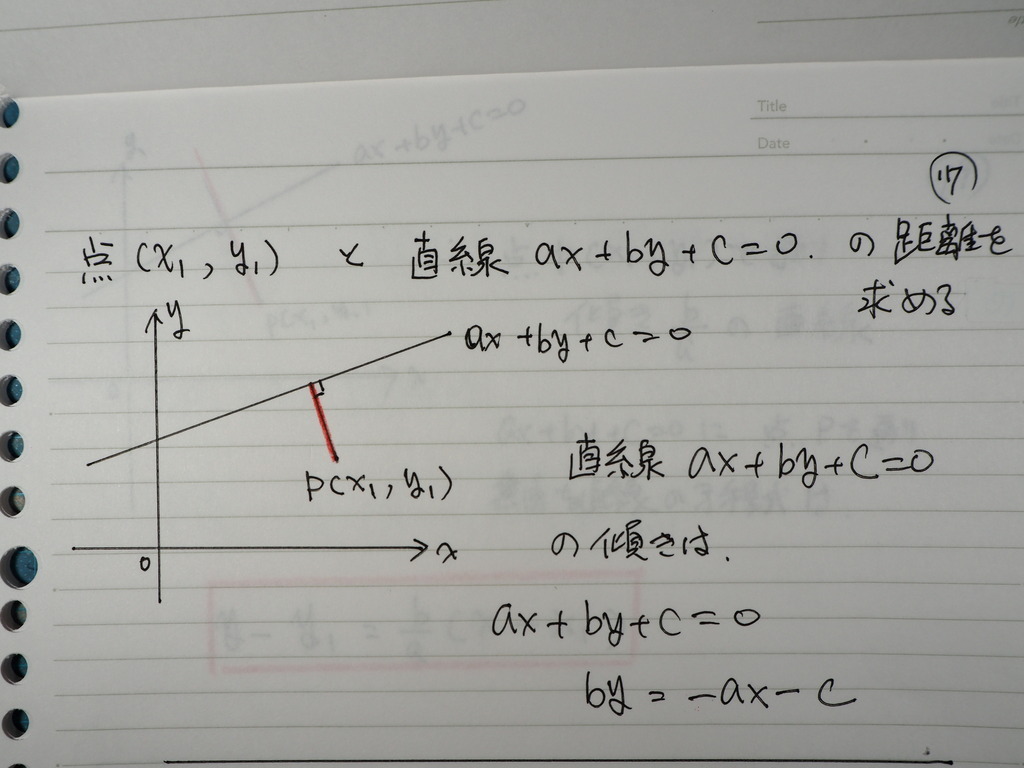 Title
Date
⑰
点(x₁, y₁) と 直線 ax+by+c=0. の距離を
求める
y
ax+by+c=0
P(x₁, y₁)
x
0
直線 ax+by+c=0
の傾きは.
ax+by+c=0
by = -ax-c